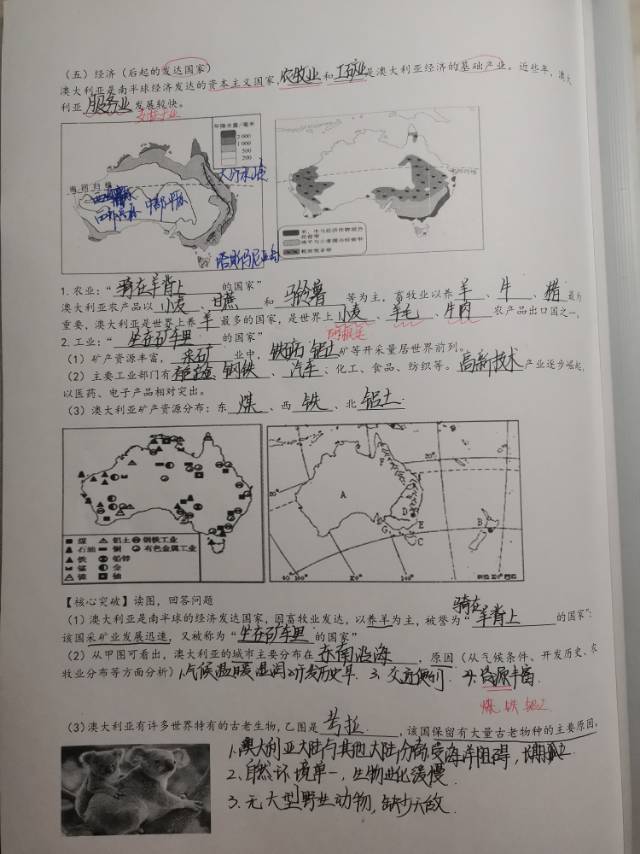 （五）经济（后起的发达国家）
澳大利亚是南半球经济发达的资本主义国家,农牧业和工矿业是澳大利亚经济的基础产业。近些年，澳大
利亚服务业发展较快。
年降水量/毫米
2 000
1 000
500
200
南回归线
大分水岭
中部平原
1.农业：“骑在羊背上的国家”
澳大利亚农产品以小麦、甘蔗和马铃薯等为主，畜牧业以养羊、牛、猪最为
重要，澳大利亚是世界上养羊最多的国家，是世界上小麦、羊毛、牛肉农产品出口国之一。
2.工业：“坐在矿车里的国家”
（1）矿产资源丰富，采矿业中，铁矿石 铝土矿等开采量居世界前列。
（2）主要工业部门有 钢铁、汽车、化工、食品、纺织等。高新技术产业逐步崛起，
以医药、电子产品相对突出。
（3）澳大利亚矿产资源分布：东煤、西铁、北铝土
煤 铝土 钢铁工业
石油 铜 有色金属工业
铁 铅锌
锰 金
镍 铀
A
D
E
G
C
B
【核心突破】读图，回答问题
（1）澳大利亚是南半球的经济发达国家，因畜牧业发达，以养羊为主，被誉为“骑在羊背上的国家”；
该国采矿业发展迅速，又被称为“坐在矿车里的国家”
（2）从甲图可看出，澳大利亚的城市主要分布在东南沿海，原因（从气候条件、开发历史、农
牧业分布等方面分析）1.气候温暖湿润 2.开发历史早 3.交通便利 4.资源丰富
煤 铁
（3）澳大利亚有许多世界特有的古老生物,乙图是考拉，该国保留有大量古老物种的主要原因,
1.澳大利亚大陆与其他大陆分离,受海洋阻碍，长期孤立
2、自然环境单一，生物进化缓慢
3.无大型野生动物，缺少天敌.